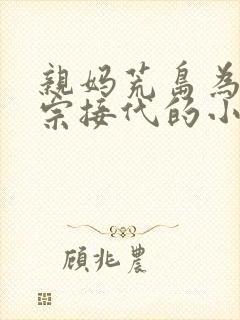 親妈荒島為
宗接代的小
顧兆農